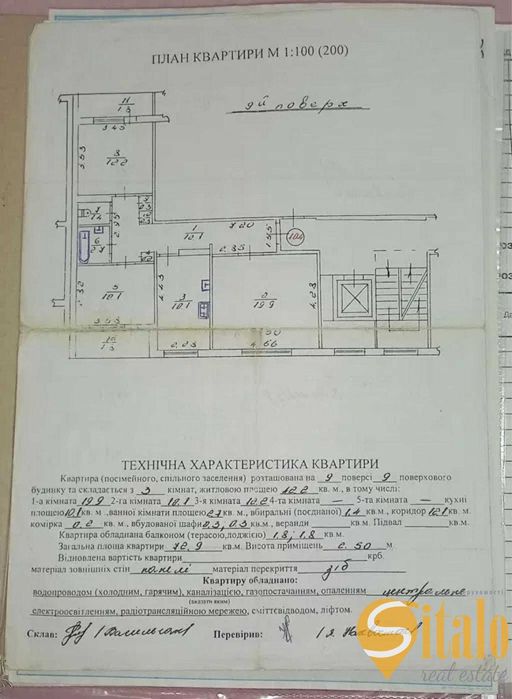 ПЛАН КВАРТИРИ М 1:100 (200)
9й поверх
II
1.8
3.45
3.53
8
12.2
7
1.4
2.95
6
2.7
1
12.1
7.20
1.55
104
2.85
5
10.1
4.45
3
10.1
2
19.9
4.28
3.53
2.23
4.66
ТЕХНІЧНА ХАРАКТЕРИСТИКА КВАРТИРИ
Квартира (посімейного, спільного заселення) розташована на 9 поверсі 9 поверхового
будинку та складається з 3 кімнат, житловою площею 42.2 кв. м, в тому числі:
1-а кімната 19.9 2-га кімната 10.1 3-я кімната 12.2 4-та кімната — 5-та кімната — кухні
площею 10.1 кв.м , ванної кімнати площею 2.7 кв.м, вбиральні (поєднаної) 1.4 кв.м, коридор 12.1 кв.м.
комірка 0.2 кв.м, вбудовані шафи 0.3, 0.3 кв.м , веранди кв. м Підвал кв.м.
Квартира обладнана балконом (терасою,лоджією) 1.8; 1.8 кв.м
Загальна площа квартири 72.9 кв.м. Висота приміщень 2.50 м
Відновлена вартість квартири крб.
матеріал зовнішніх стін панелі матеріал перекриття з/б
Квартиру обладнано:
водопроводом (холодним, гарячим), каналізацією, газопостачанням, опаленням центральне
(вказати яким)
електроосвітленням, радіотрансляційною мережею, сміттєвідводом, ліфтом.
Склав: Перевірив:
Sitalo
real estate